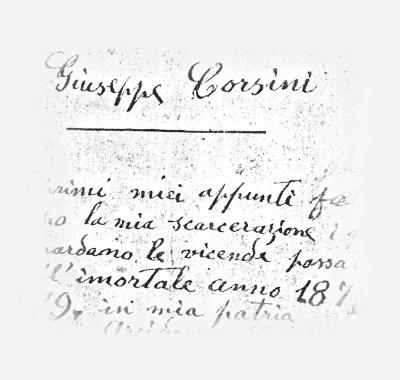 Giuseppe Corsini
primi miei appunti
la mia scarcerazione
le vicende
imortale anno 187
in mia patria